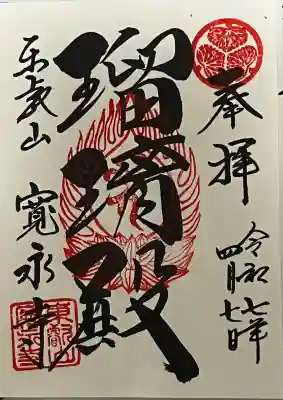 奉拝
令和七年
四月七日
瑠璃殿
東叡山 寛永寺
東叡山寛永寺